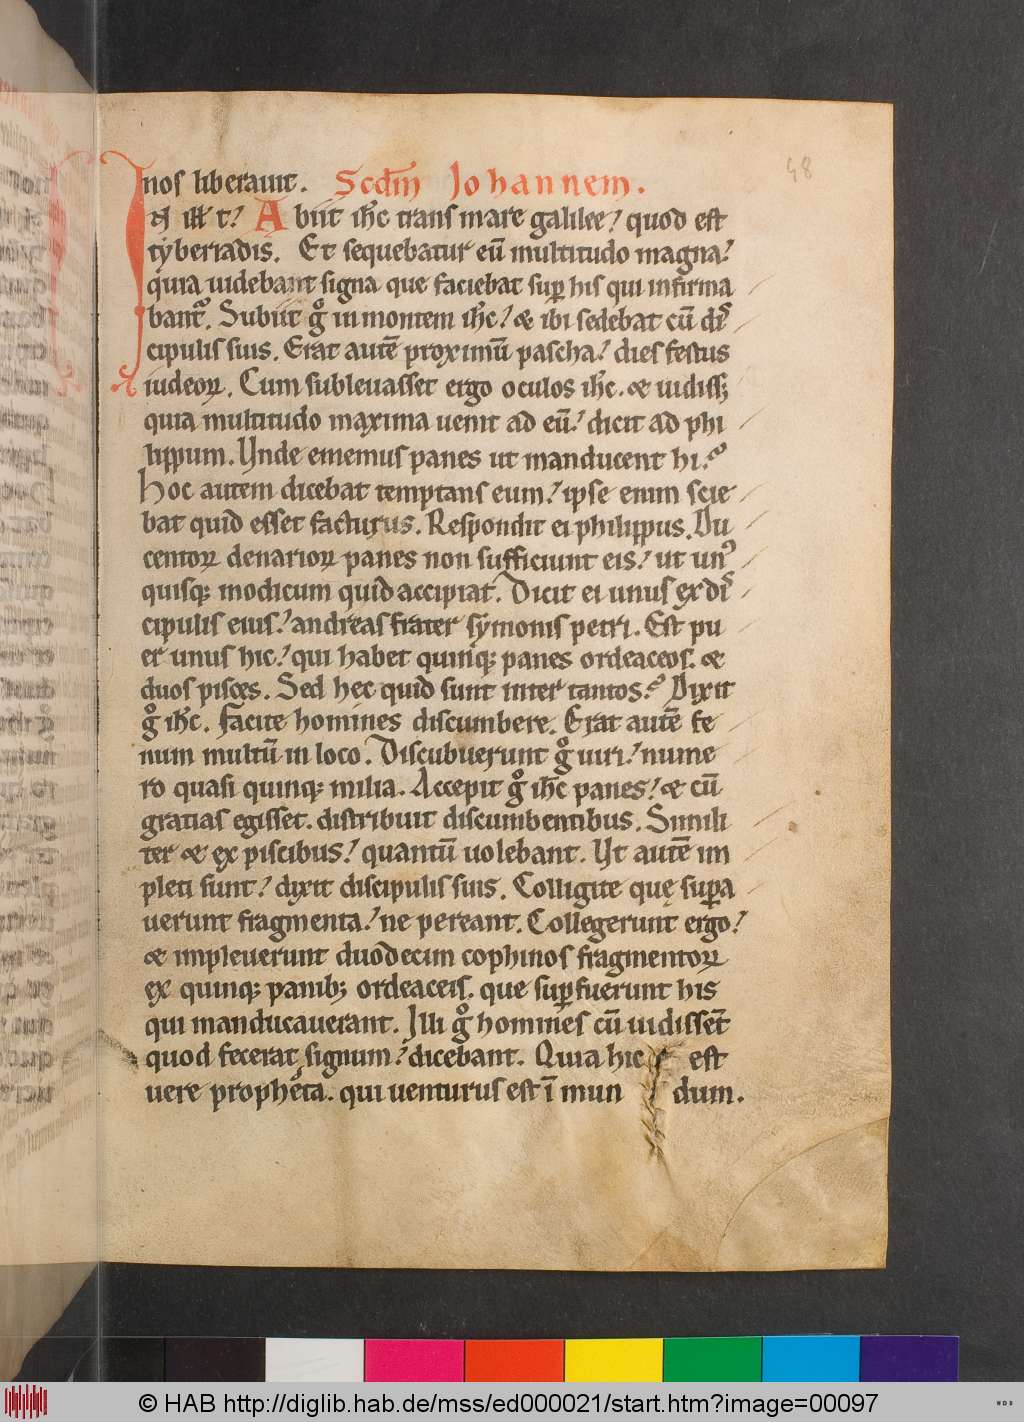 48
nos liberauit. Scdm̄ Johannem.
In ill̄ t̄? Abiit ih̄c trans mare galilee? quod est
tyberiadis. Et sequebatur eū multitudo magna?
quia uidebant signa que faciebat suꝑ his qui infirma
bantᷣ. Subiit gͦ in montem ih̄c? & ibi sedebat cū diſ
cipulis suis. Erat autē proximū pascha? dies festus
iudeoꝝ. Cum subleuasset ergo oculos ih̄c. & uidiss;
quia multitudo maxima uenit ad eū? dicit ad phi
lippum. Vnde ememus panes ut manducent hi?
Hoc autem dicebat temptans eum? ipse enim scie
bat quid esset facturus. Respondit ei philippus. Du
centoꝝ denarioꝝ panes non sufficiunt eis? ut unꝰ
quisq; modicum quid accipiat. Dicit ei unus ex diſ
cipulis eius? andreas frater symonis petri. Est pu
er unus hic? qui habet quinq; panes ordeaceos. &
duos pisces. Sed hec quid sunt inter tantos? Dixit
gͦ ih̄c. facite homines discumbere. Erat autē fe
num multū in loco. Discubuerunt gͦ uiri? nume
ro quasi quinq; milia. Accepit gͦ ih̄c panes? & cū
gratias egisset. distribuit discumbentibus. Simili
ter & ex piscibus? quantū uolebant. Vt autē im
pleti sunt? dixit discipulis suis. Colligite quę supͣa
uerunt fragmenta? ne pereant. Collegerunt ergo?
& impleuerunt duodecim cophinos fragmentoꝝ
ex quinq; panib; ordeaceis. que suꝑfuerunt his
qui manducauerant. Illi gͦ homines cū uidissēt
quod fecerat signum? dicebant. Quia hic est
uere propheta. qui uenturus est ī mun dum.
© HAB http://diglib.hab.de/mss/ed000021/start.htm?image=00097